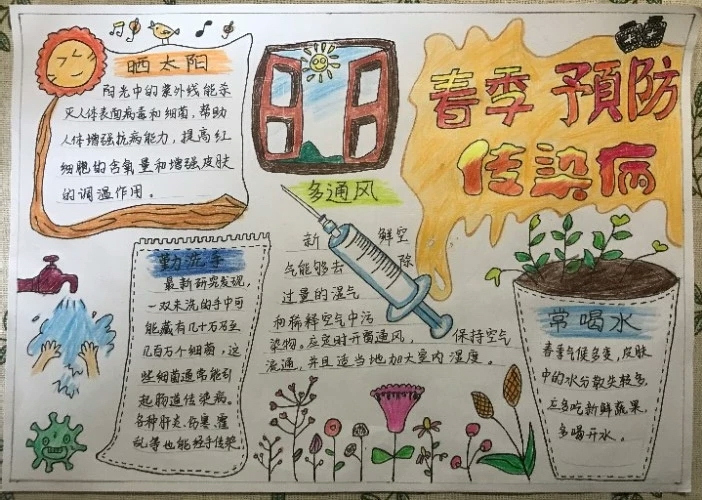 春季預防
传染病
晒太阳
阳光中的紫外线能杀
灭人体表面病毒和细菌，帮助
人体增强抗病能力，提高红
细胞的含氧量和增强皮肤
的调温作用。
多通风
新鲜空
气能够去除
过量的湿气
和稀释室气中污
染物。应定时开窗通风，保持空气
流通，并且适当地加大室内湿度。
勤洗手
最新研究发现，
一双未洗的手中可
能藏有几十万乃至
几百万个细菌，这
些细菌通常能引
起肠道传染病。
各种肝炎、伤寒、霍
乱等也能经手传染
常喝水
春季气候多变，皮肤
中的水分散失较多，
应多吃新鲜蔬果，
多喝开水。